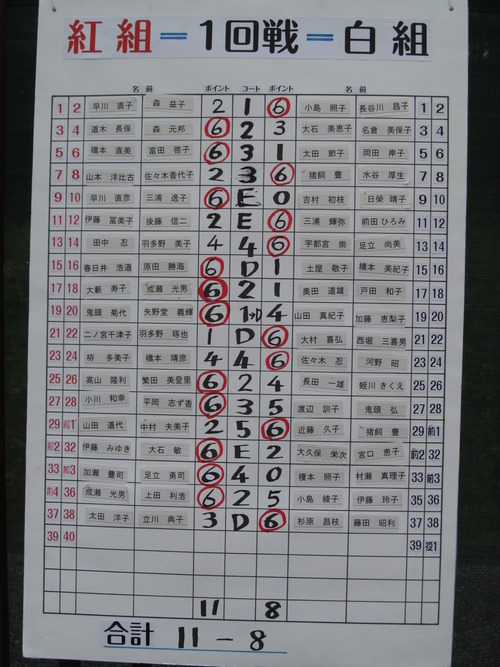 紅組＝1回戦＝白組
名前 ポイント コート ポイント 名前
1 2 早川 直子 森 益子 2 1 6 小島 照子 長谷川 昌子 1 2
3 4 道木 長保 森 元邦 6 2 3 大石 美恵子 名倉 美保子 3 4
5 6 橋本 直美 富田 啓子 6 3 1 太田 節子 岡田 岸子 5 6
7 8 山本 洋比古 佐々木香代子 2 3 6 猪飼 豊 水谷 厚生 7 8
9 10 早川 直彦 三浦 逸子 6 E 0 吉村 初枝 日榮 晴子 9 10
11 12 伊藤 冨美子 後藤 信二 2 E 6 三浦 輝弥 前田 ひろみ 11 12
13 14 田中 忍 羽多野 美子 4 4 6 宇都宮 崇 足立 尚美 13 14
15 16 春日井 浩道 原田 勝海 6 D 1 土屋 敬子 橋本 美紀子 15 16
17 18 大薮 寿子 成瀬 光男 6 2 1 奥田 道雄 戸田 和子 17 18
19 20 鬼頭 菊代 矢野堂 義輝 6 1→D 4 山田 真紀子 加藤 恵梨子 19 20
21 22 二ノ宮千津子 羽多野 琢也 1 D 6 大村 喜弘 西堀 三喜男 21 22
23 24 栫 多美子 橋本 靖彦 4 4 6 佐々木 忍 河野 昭 23 24
25 26 高山 隆利 繁田 美登里 6 2 4 長田 一雄 蛭川 きくえ 25 26
27 28 小川 和幸 平岡 志ず香 6 3 5 渡辺 訓子 鬼頭 弘 27 28
29 山田 道代 中村 夫美子 2 5 6 近藤 久子 猪飼 豊 29
32 伊藤 みゆき 大石 敏 6 E 2 大久保 栄次 宮口 恵子 32
33 加瀬 豊司 足立 勇司 6 4 0 榎本 照子 村瀬 真理子 33
36 成瀬 光男 上田 利浩 6 2 5 小島 綾子 伊藤 玲子 35 36
37 38 太田 洋子 立川 典子 3 D 6 杉原 昌枝 藤田 昭利 37 38
39 40 39
11 8
合計 11 － 8